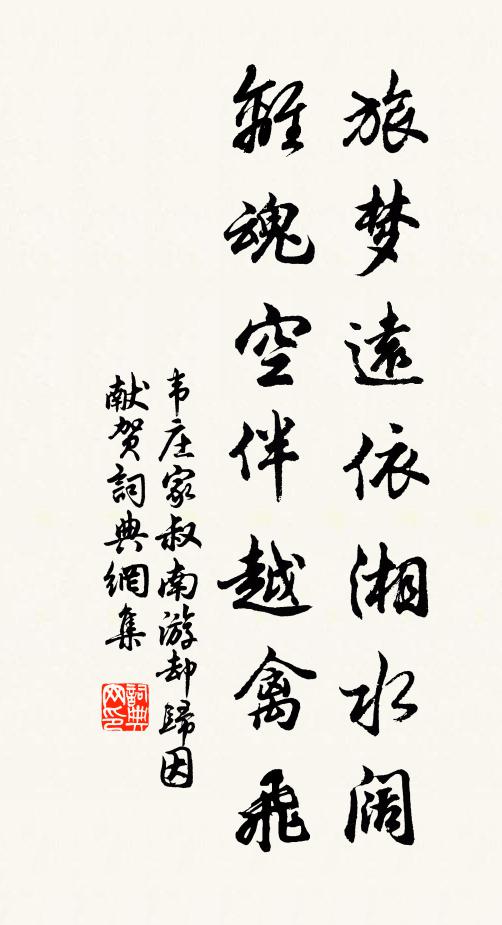 旅梦遠依湘水阔
離魂空伴越禽飛
韦庄家叔南游却歸因
献贺詞典網集
詞典网印